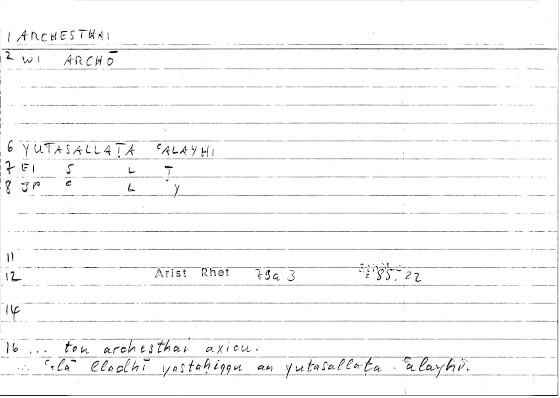 1 ARCHESTHAI
2 WI ARCHŌ
6 YUTASALLAṬA ʿALAYHI
7 EI S L Ṭ
8 JP ʿ L Y
11
12 Arist Rhet 79a 3 85, 22
14
16 ... tou archesthai axiou.
lladhī yastaḥiqqu an yutasallaṭa ʿalayhi.